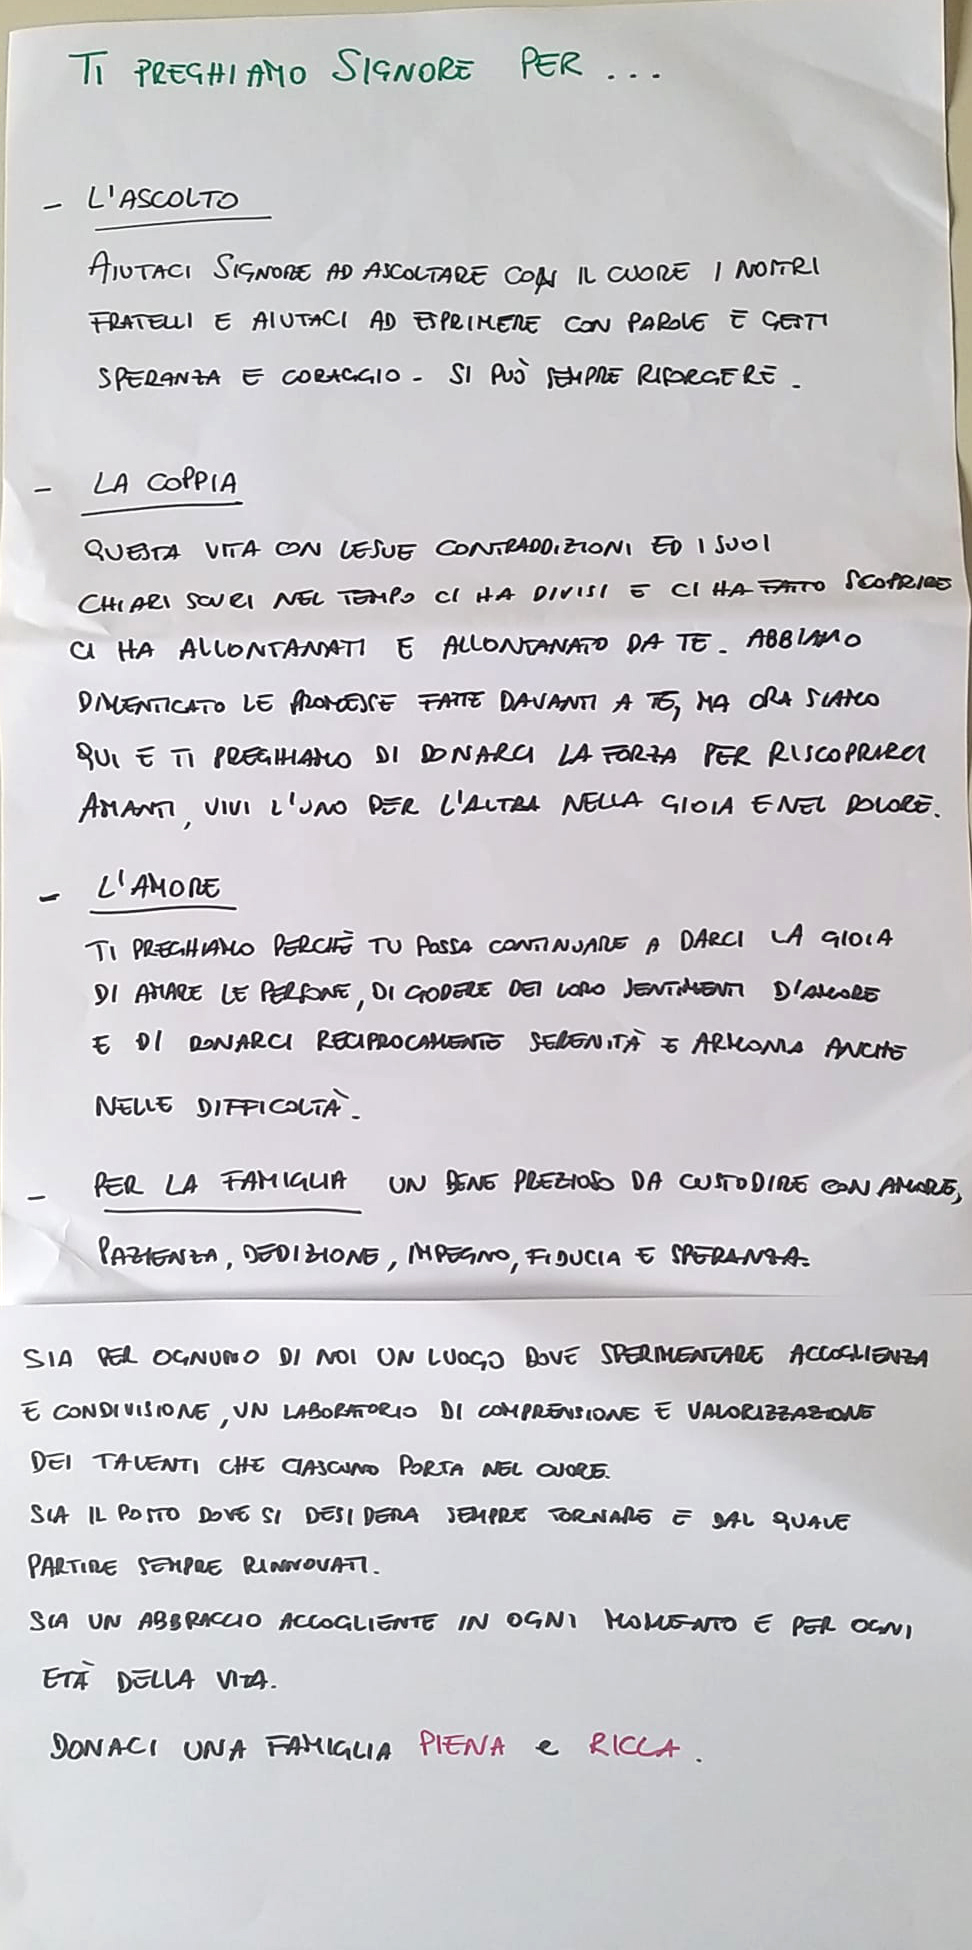 TI PREGHIAMO SIGNORE PER ...
- L'ASCOLTO
AIUTACI SIGNORE AD ASCOLTARE CON IL CUORE I NOSTRI
FRATELLI E AIUTACI AD ESPRIMERE CON PAROLE E GESTI
SPERANZA E CORAGGIO - SI PUÒ SEMPRE RISORGERE.
- LA COPPIA
QUESTA VITA CON LE SUE CONTRADDIZIONI ED I SUOI
CHIARI SCURI NEL TEMPO CI HA DIVISI E CI HA FATTO SCOPRIRE
CI HA ALLONTANATI E ALLONTANATO DA TE. ABBIAMO
DIMENTICATO LE PROMESSE FATTE DAVANTI A TE, MA ORA SIAMO
QUI E TI PREGHIAMO DI DONARCI LA FORZA PER RISCOPRIRCI
AMANTI, VIVI L'UNO PER L'ALTRA NELLA GIOIA E NEL DOLORE.
- L'AMORE
TI PREGHIAMO PERCHÈ TU POSSA CONTINUARE A DARCI LA GIOIA
DI AMARE LE PERSONE, DI GODERE DEI LORO SENTIMENTI D'AMORE
E DI DONARCI RECIPROCAMENTE SERENITÀ E ARMONIA ANCHE
NELLE DIFFICOLTÀ.
- PER LA FAMIGLIA UN BENE PREZIOSO DA CUSTODIRE CON AMORE,
PAZIENZA, DEDIZIONE, IMPEGNO, FIDUCIA E SPERANZA.
SIA PER OGNUNO DI NOI UN LUOGO DOVE SPERIMENTARE ACCOGLIENZA
E CONDIVISIONE, UN LABORATORIO DI COMPRENSIONE E VALORIZZAZIONE
DEI TALENTI CHE CIASCUNO PORTA NEL CUORE.
SIA IL POSTO DOVE SI DESIDERA SEMPRE TORNARE E DAL QUALE
PARTIRE SEMPRE RINNOVATI.
SIA UN ABBRACCIO ACCOGLIENTE IN OGNI MOMENTO E PER OGNI
ETÀ DELLA VITA.
DONACI UNA FAMIGLIA PIENA e RICCA.